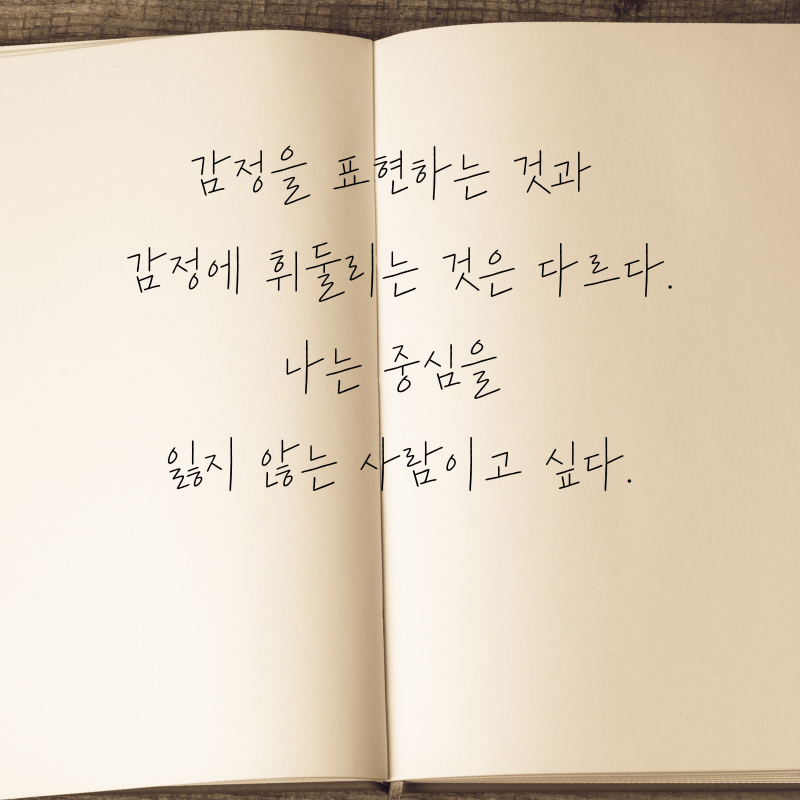 감정을 표현하는 것과
감정에 휘둘리는 것은 다르다.
나는 중심을
잃지 않는 사람이고 싶다.